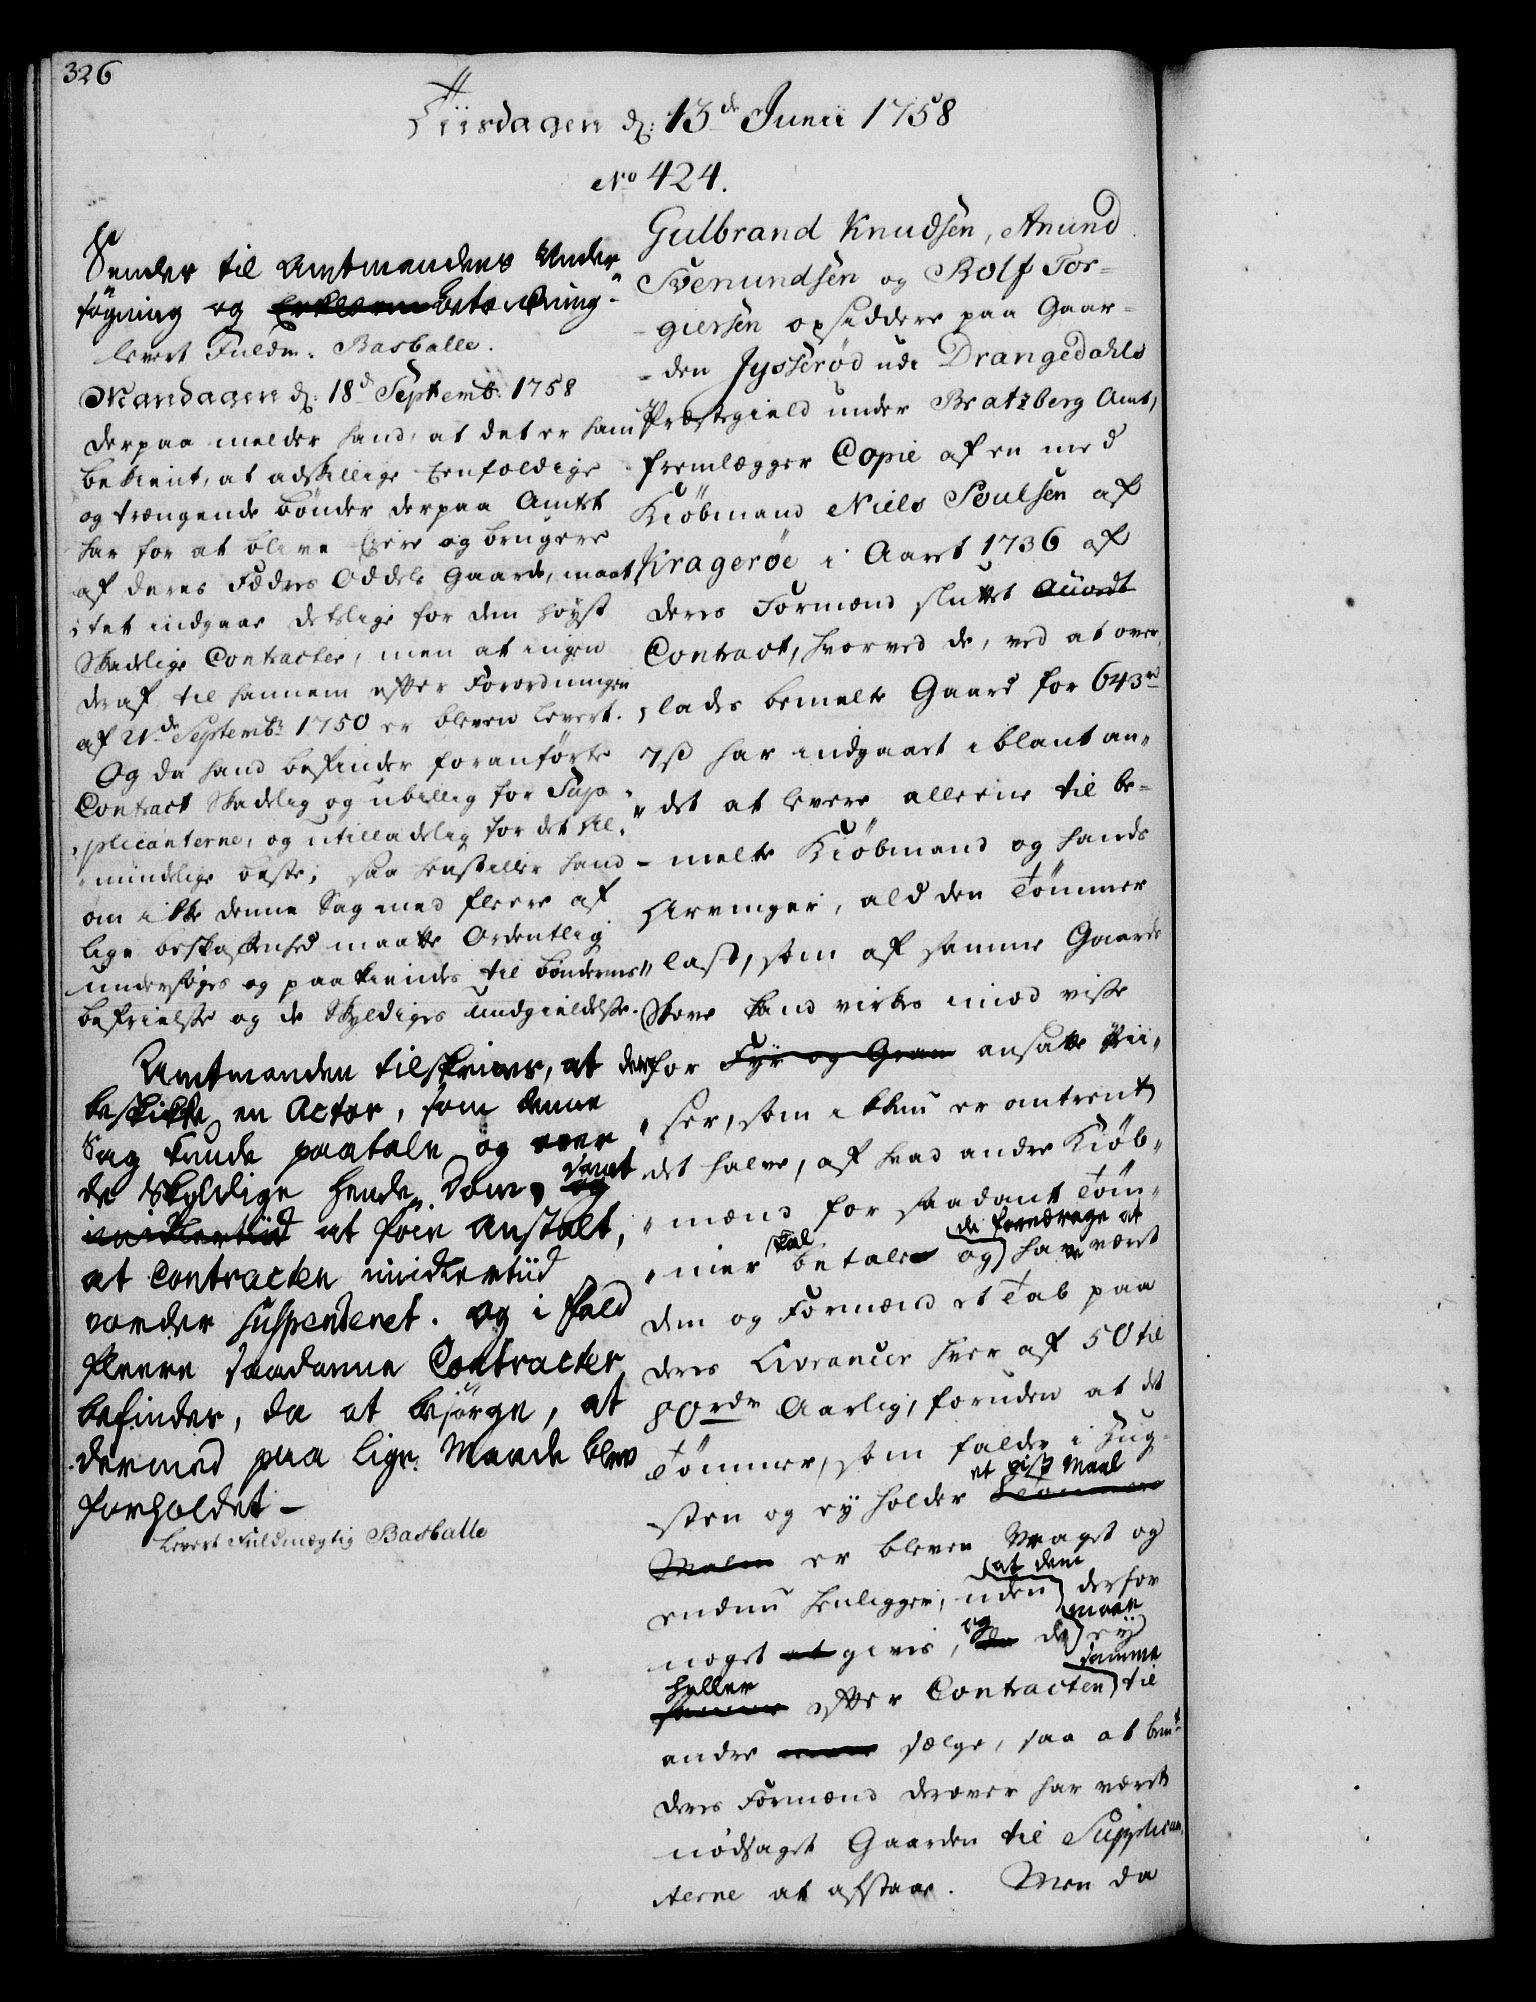 326
Tiirsdagen d: 13de Junii 1758
No 424.
Sendes til Amtmandens Under-
søgning og Erklæring betænkning.
levert Fuldm. Basballe.
Mandagen d: 18d Septemb: 1758
Derpaa melder hand, at det er ham
bekient, at adskillige Eenfoldige
og trængende bønder derpaa Amtet
har for at blive Eiere og brugere
af deres Fædres Oddels Gaarde, maat-
tet indgaae deslige for dem høyst
Skadelige Contracter, men at ingen
deraf til hannem efter Forordningen
af 21de Septembr 1750 er bleven levert.
Og da hand befinder foranførte
Contract Skadelig og ubillig for Sup-
plicanterne, og utilladelig for det All-
mindelige beste; saa henstiller hand
om ikke denne Sag med fleere af
lige beskaffenhed maatte Ordentlig
undersøges og paakiendes til bønderens
befrielse og de Skyldiges Undgieldelse.
Amtmanden tilskrives, at
beskikke en Actor, som denne
Sag kunde paatale og over
de skyldige hende Dom, og samt
imidlertid at føie anstalt,
at Contracten imidlertiid
vorder suspenderet. og i fald
fleere saadanne Contracter
befindes, da at besørge, at
dermed paa lige Maade blev
forholdet –
Levert Fuldmægtig Basballe
Gulbrand Knudsen, Anund
Svenundsen og Rolf Tor-
giersen opsiddere paa Gaar-
den Jysserød udi Drangedahls
Præstegield under Bratzberg Amt,
fremlægger Copie af en med
Kiøbmand Niels Poulsen af
Kragerøe i Aaret 1736 af
deres Formænd sluttet
Contract, hvorved de, ved at over-
lades bemelte Gaard for 643rd
7ß har indgaaet iblant an-
det at levere alleene til be-
melte Kiøbmand og hands
Arvinger, ald den Tømmer
last, som af samme Gaards
Skove kand virkes imod visse
derfor Fyr og Gran ansatte Prii-
ser, som ikkun er omtrent
det halve, af hvad andre Kiøb-
mænd for saadant Tøm-
mer skal betale og de foredrage at have været
dem og Formænd et Tab paa
deres Livrancer hver af 50 til
80 rdr Aarlig, foruden at det
Tømmer, som falder i Hug-
sten og ey holder et vist Maal Tømmer
Malm er bleven Vraget og
endnu henligger, uden at dem derfor
noget at gives, og da de maae ey
heller samme efter Contracten samme til
andre maae sælge, saa at bemte
deres Formænd derover har været
nødsaget Gaarden til Supplican-
terne at afstaae. Men da